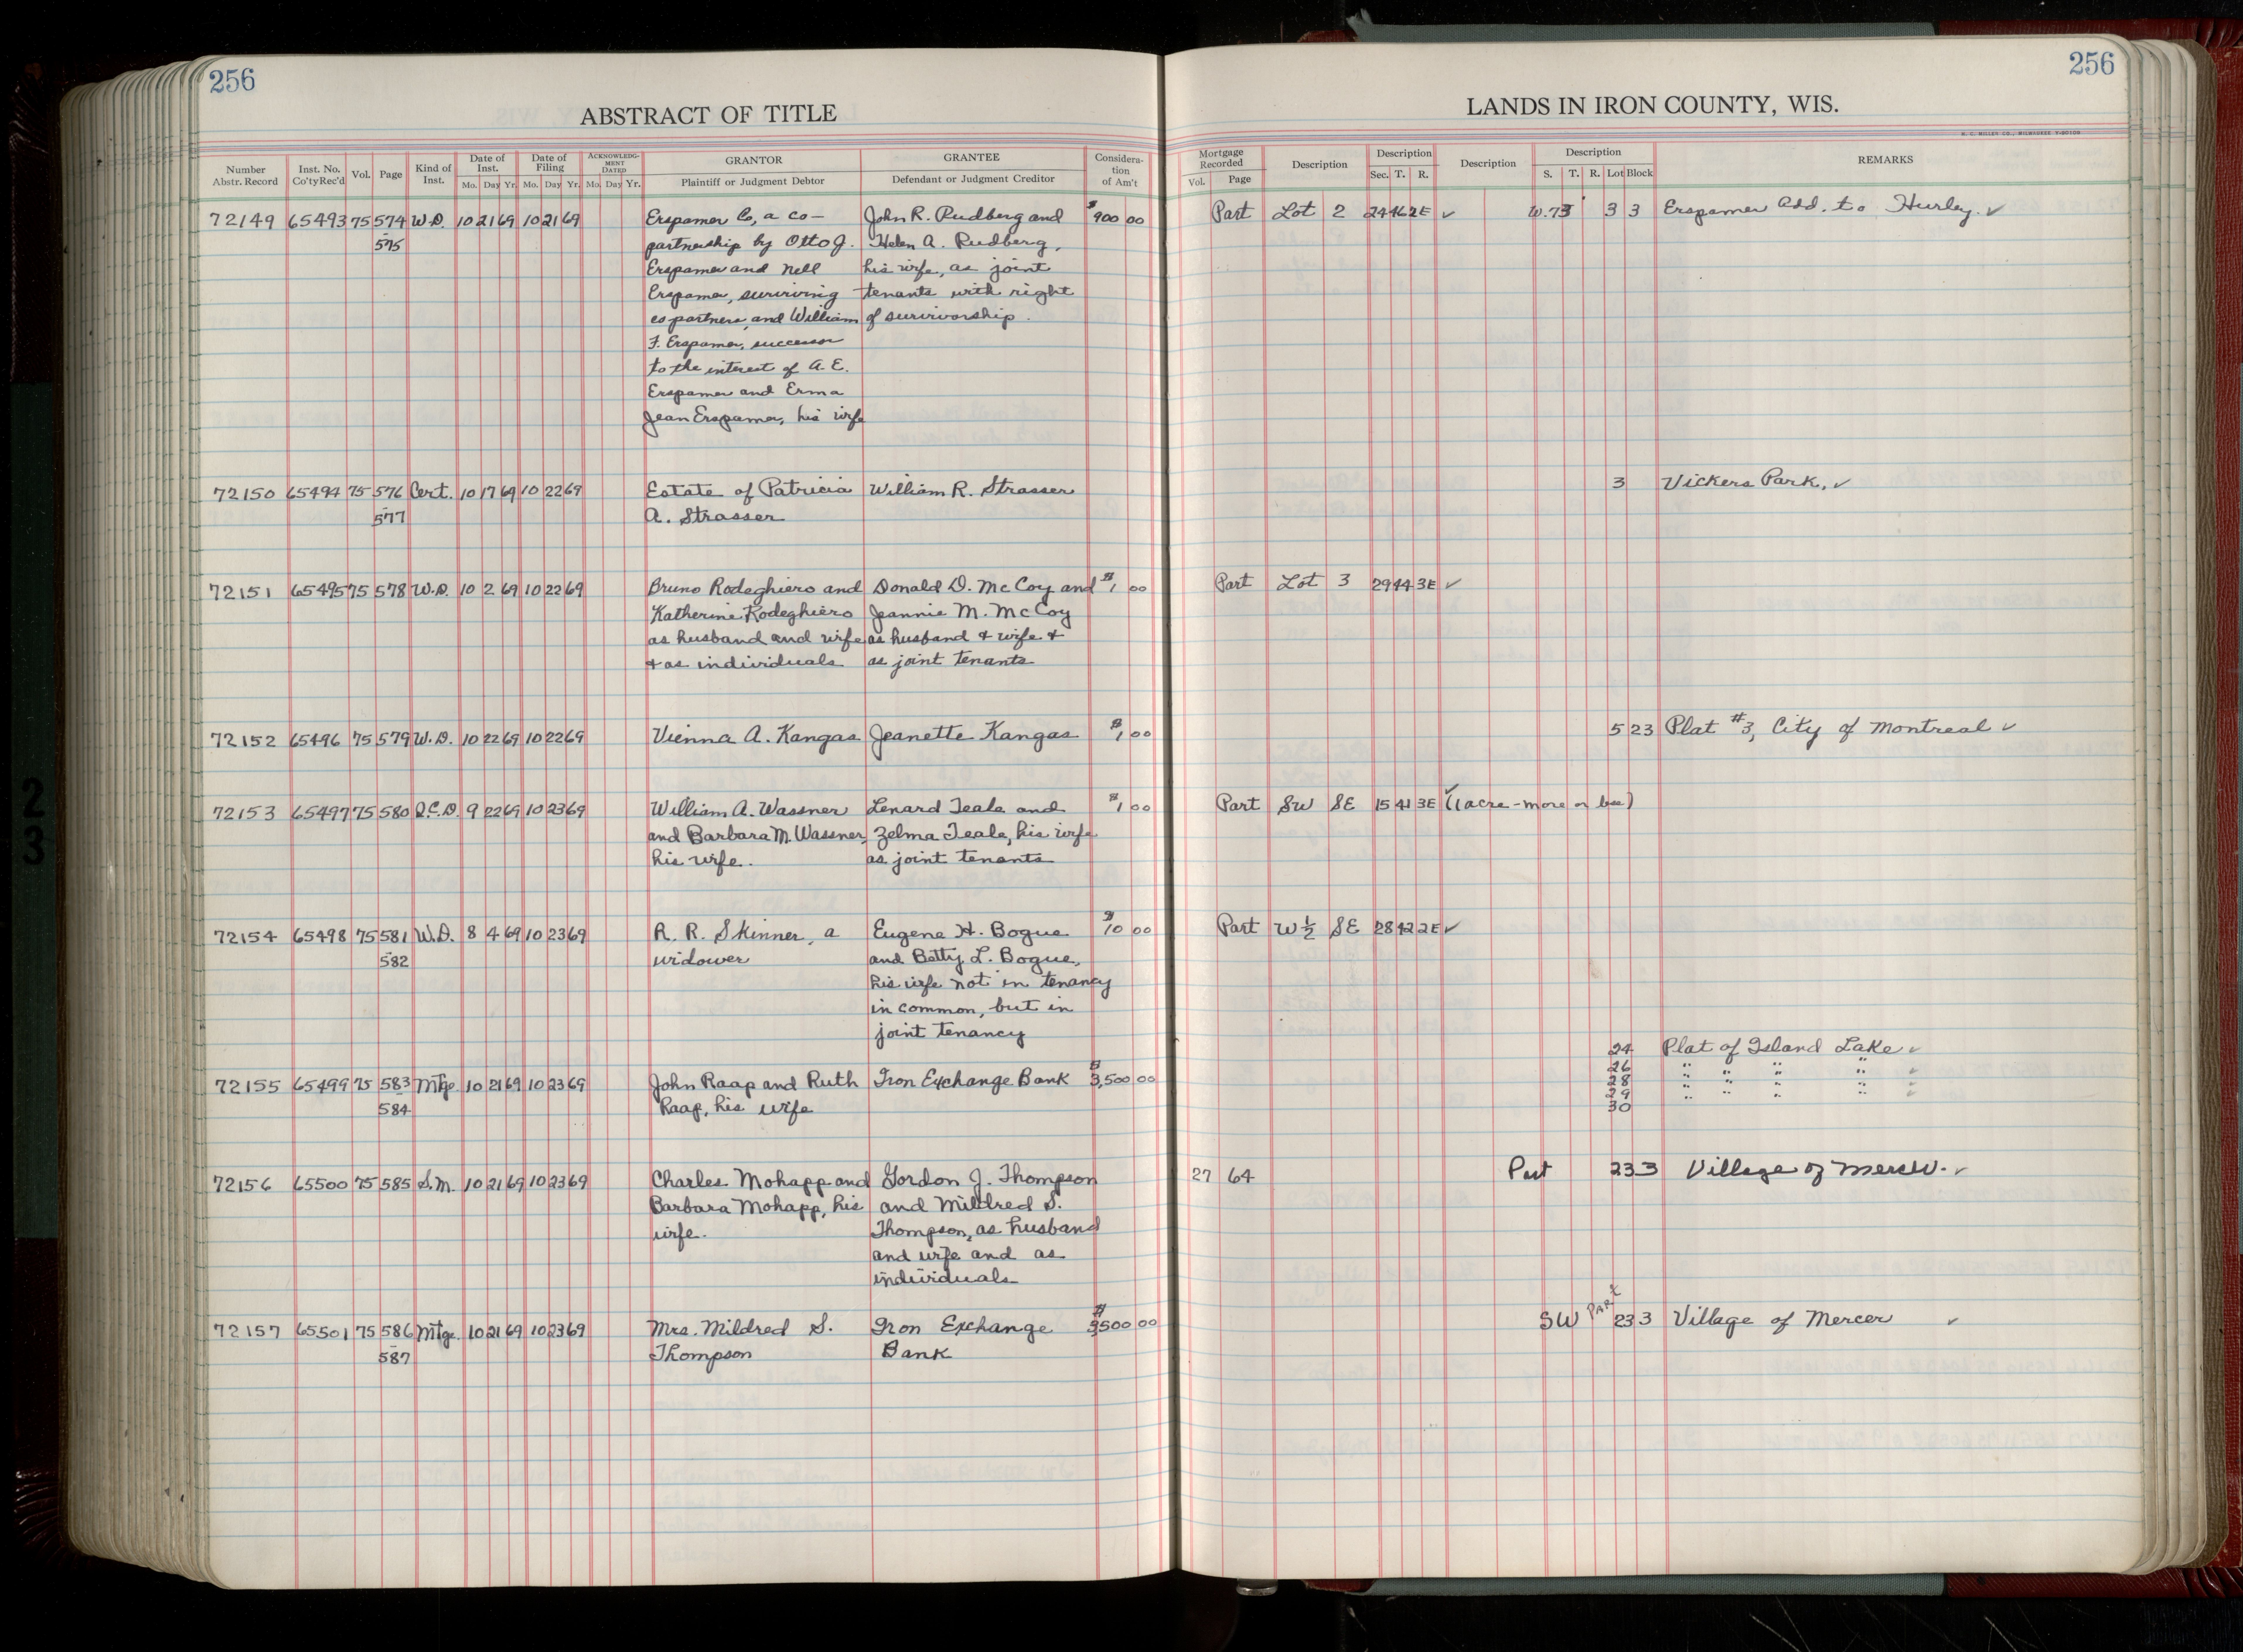 256
256
ABSTRACT OF TITLE
LANDS IN IRON COUNTY, WIS.
H. C. MILLER CO., MILWAUKEE
Number Abstr. Record | Inst. No. Co'ty Rec'd | Vol. | Page | Kind of Inst. | Date of Inst. Mo. Day Yr. | Date of Filing Mo. Day Yr. | ACKNOWLEDGMENT DATED Mo. Day Yr. | GRANTOR Plaintiff or Judgment Debtor | GRANTEE Defendant or Judgment Creditor | Consideration of Am't | Mortgage Recorded Vol. Page | Description | Description Sec. T. R. | Description | Description S. T. R. Lot Block | REMARKS
72149 65493 75 574 W.D. 10 21 69 10 21 69 Erspamer Co, a co- John R. Rudberg and $900 00 Part Lot 2 24 46 2E ✓ W. 73' 3 3 Erspamer Add. to Hurley. ✓
575 partnership by Otto J. Helen A. Rudberg,
Erspamer and Nell his wife, as joint
Erspamer, surviving tenants with right
co partners, and William of survivorship.
F. Erspamer, successor
to the interest of A. E.
Erspamer and Erma
Jean Erspamer, his wife
72150 65494 75 576 Cert. 10 17 69 10 22 69 Estate of Patricia William R. Strasser 3 Vickers Park. ✓
577 A. Strasser
72151 65495 75 578 W.D. 10 2 69 10 22 69 Bruno Rodeghiero and Donald D. McCoy and $1 00 Part Lot 3 29 44 3E ✓
Katherine Rodeghiero Jeannie M. McCoy
as husband and wife as husband + wife +
+ as individuals as joint tenants
72152 65496 75 579 W.D. 10 22 69 10 22 69 Vienna A. Kangas Jeanette Kangas $1 00 5 23 Plat #3, City of Montreal ✓
72153 65497 75 580 Q.C.D. 9 22 69 10 23 69 William A. Wassner Lenard Teala and $1 00 Part SW SE 15 41 3E ✓ (1 acre - more or less)
and Barbara M. Wassner, Zelma Teala, his wife
his wife. as joint tenants
72154 65498 75 581 W.D. 8 4 69 10 23 69 R. R. Skinner, a Eugene H. Bogue $10 00 Part W 1/2 SE 28 42 2E ✓
582 widower and Betty L. Bogue,
his wife not in tenancy
in common, but in
joint tenancy
24 Plat of Island Lake ✓
26 " " " " ✓
72155 65499 75 583 Mtge 10 21 69 10 23 69 John Raap and Ruth Iron Exchange Bank $3,500 00 28 " " " " ✓
29 " " " " ✓
584 Raap, his wife 30
72156 65500 75 585 S.M. 10 21 69 10 23 69 Charles Mohapp and Gordon J. Thompson 27 64 Part 23 3 Village of Mercer. ✓
Barbara Mohapp, his and Mildred S.
wife. Thompson, as husband
and wife and as
individuals
72157 65501 75 586 Mtge 10 21 69 10 23 69 Mrs. Mildred S. Iron Exchange $3500 00 SW PART 23 3 Village of Mercer ✓
587 Thompson Bank
2
3